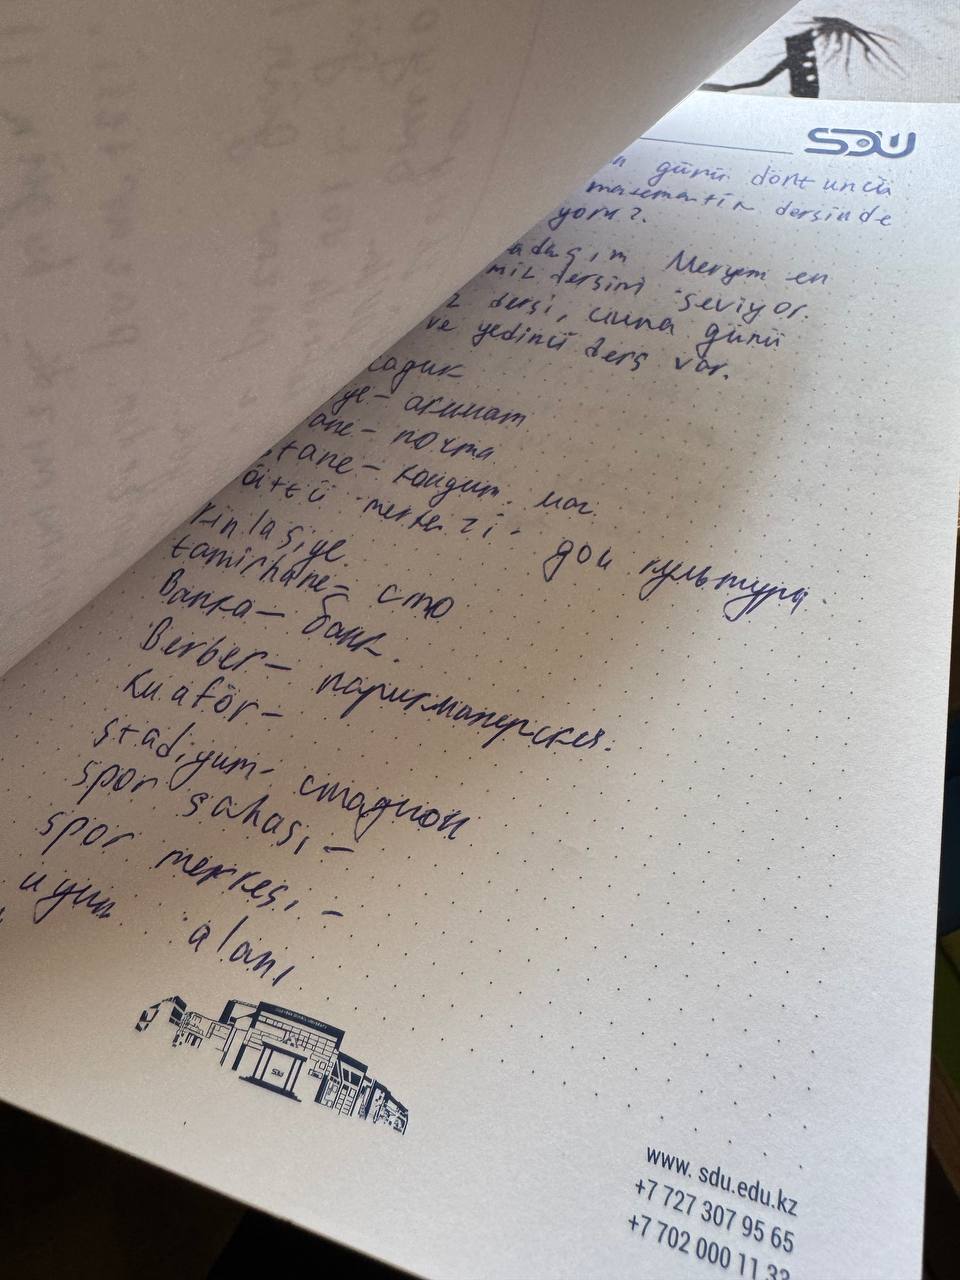 SDU
günü dörtüncü
matematik dersinde
yoru?
adaşım Meryem en
mil dersini seviyor.
z dersi, cuma günü
ve yedinci ders var.
садик
ye - акимат
ane - почта
stane - кондит. маг.
ültü merkezi - дом культуры.
kinlasiye
tamirhane - сто
Banka - банк.
Berber - парикмахерская.
Kuaför -
stadiyum - стадион
spor sahası -
spor merkesi -
uyun alanı
SDU
www.sdu.edu.kz
+7 727 307 95 65
+7 702 000 11 33